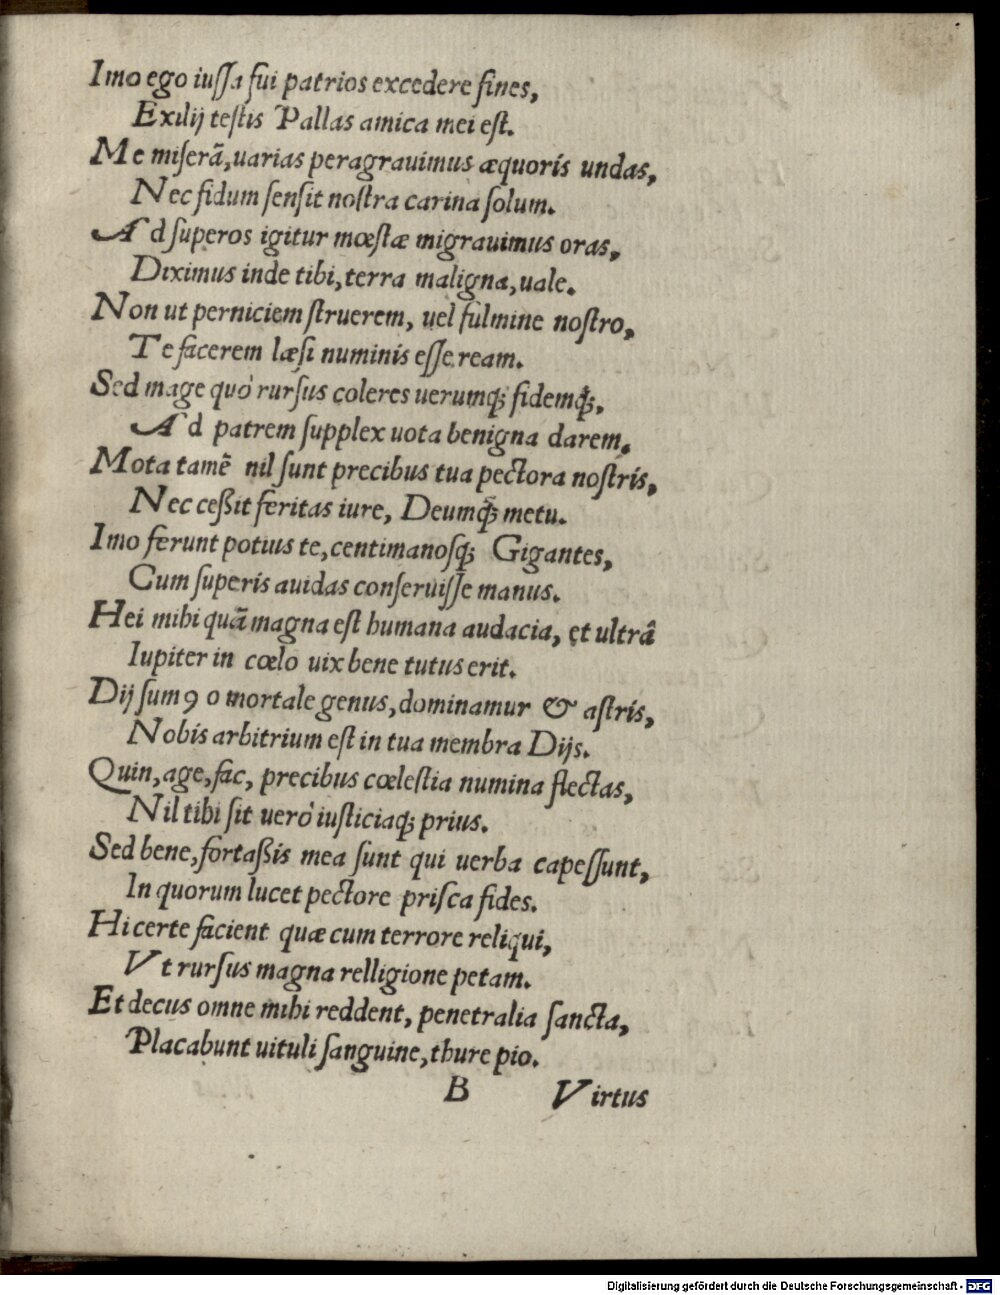 Imo ego iuſſa fui patrios excedere fines,
Exilij teſtis Pallas amica mei eſt.
Me miserã, uarias peragrauimus æquoris undas,
Nec fidum ſenſit noſtra carina ſolum.
Ad ſuperos igitur mœſtæ migrauimus oras,
Diximus inde tibi, terra maligna, uale.
Non ut perniciem ſtruerem, uel fulmine noſtro,
Te facerem læſi numinis eſſe ream.
Sed mage quò rurſus coleres uerumq́; fidemq́;,
Ad patrem ſupplex uota benigna darem.
Mota tamẽ nil ſunt precibus tua pectora noſtris,
Nec ceßit feritas iure, Deumq́; metu.
Imo ferunt potius te, centimanoſq́; Gigantes,
Cum ſuperis auidas conſeruiſſe manus.
Hei mihi quã magna eſt humana audacia, et ultrâ
Iupiter in cœlo uix bene tutus erit.
Dij ſumꝯ o mortale genus, dominamur & aſtris,
Nobis arbitrium eſt in tua membra Dijs.
Quin, age, fac, precibus cœleſtia numina flectas,
Nil tibi ſit uerò iuſticiaq́; prius.
Sed bene, fortaßis mea ſunt qui uerba capeſſunt,
In quorum lucet pectore priſca fides.
Hi certe facient quæ cum terrore reliqui,
Vt rurſus magna relligione petam.
Et decus omne mihi reddent, penetralia ſancta,
Placabunt uituli ſanguine, thure pio.
B Virtus
Digitalisierung gefördert durch die Deutsche Forschungsgemeinschaft - DFG